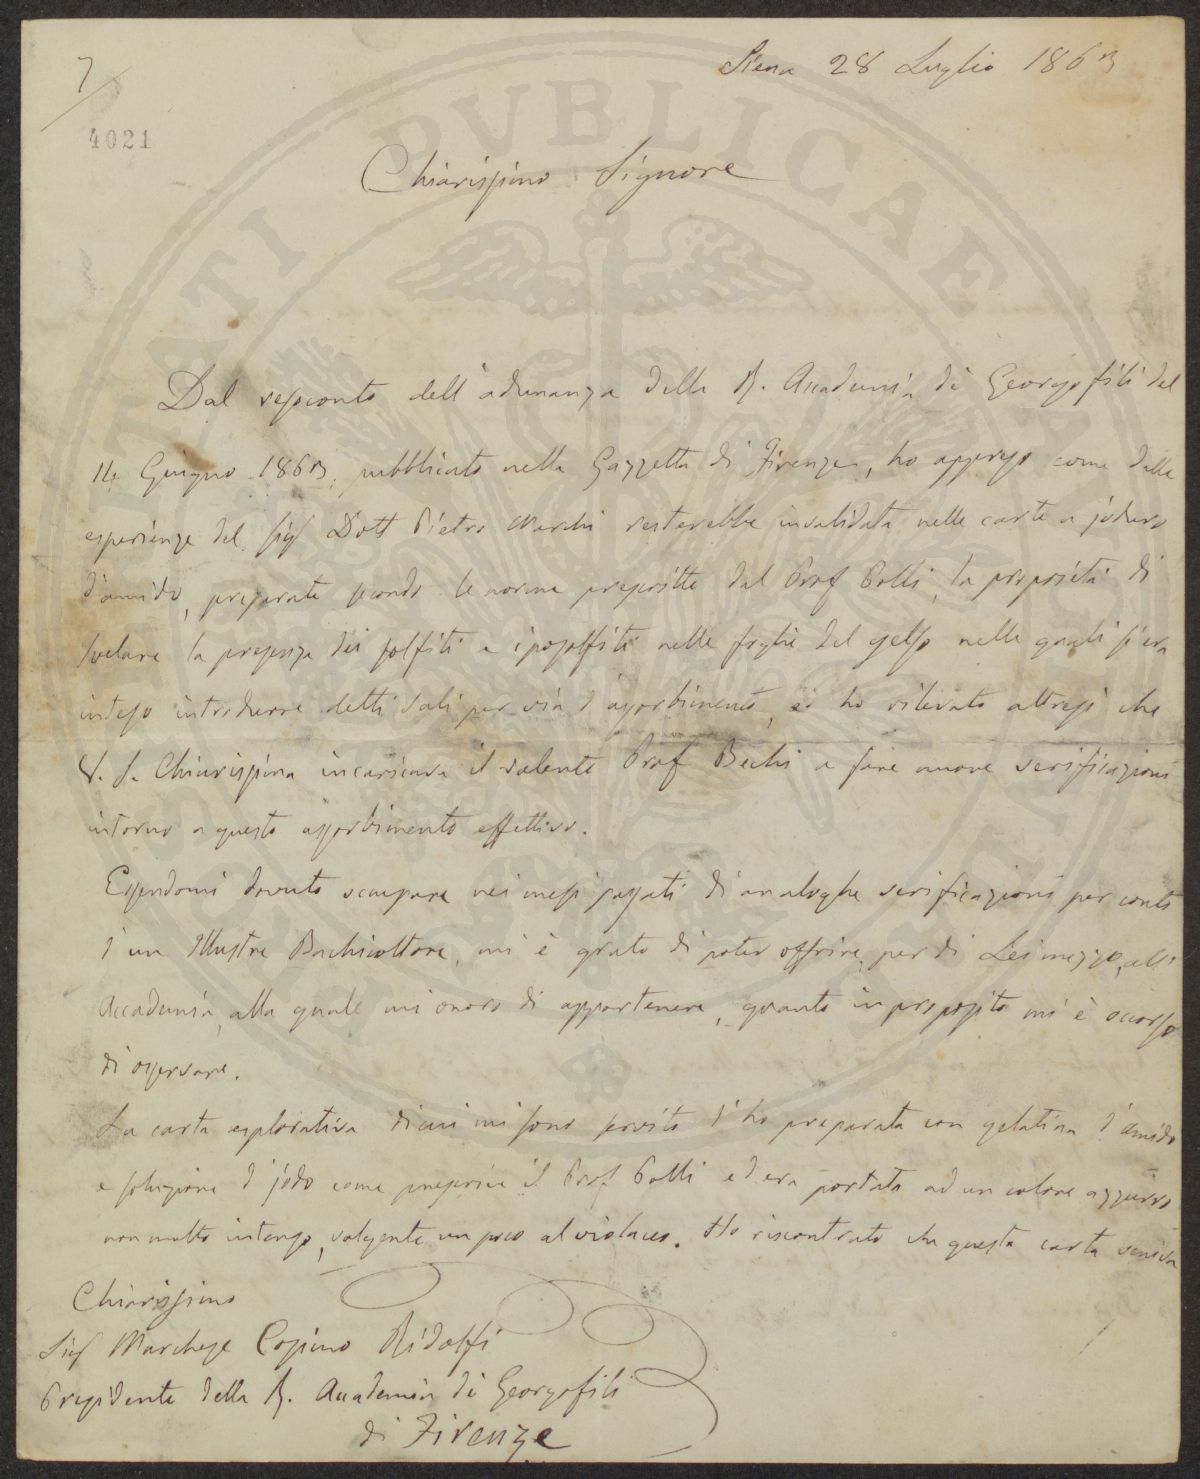 7
4021
Siena 28 Luglio 1863
Chiarissimo Signore
Dal resoconto dell'adunanza della R. Accademia dè Georgofili del
14 Giugno 1863, pubblicato nella Gazzetta di Firenze, ho appreso come dalle
esperienze del Sig Dott Pietro Marchi resterebbe invalidata nelle carte a joduro
d'amido, preparate secondo le norme prescritte dal Prof Polli, la proprietà di
svelare la presenza dei solfiti e iposolfiti nelle foglie del gelso nelle quali s'era
inteso introdurre detti sali per via d'assorbimento, e ho rilevato altresì che
V. S. Chiarissima incaricava il valente Prof Bechi a fare nuove verificazioni
intorno a questo assorbimento effettivo.
Essendomi dovuto occupare nei mesi passati di analoghe verificazioni per conto
d'un Illustre Bachicoltore, mi è grato di poter offrire, per di Lei mezzo, all'
Accademia, alla quale mi onoro di appartenere, quanto in proposito mi è occorso
di osservare.
La carta esplorativa di cui mi sono servito l'ho preparata con gelatina d'amido
e soluzione d'jodo come prescrive il Prof Polli ed era portata ad un colore azzurro
non molto intenso, volgente un poco al violaceo. Ho riscontrato che questa carta veniva
Chiarissimo
Sig Marchese Cosimo Ridolfi
Presidente della R. Accademia dè Georgofili
di Firenze
PVBLICAE